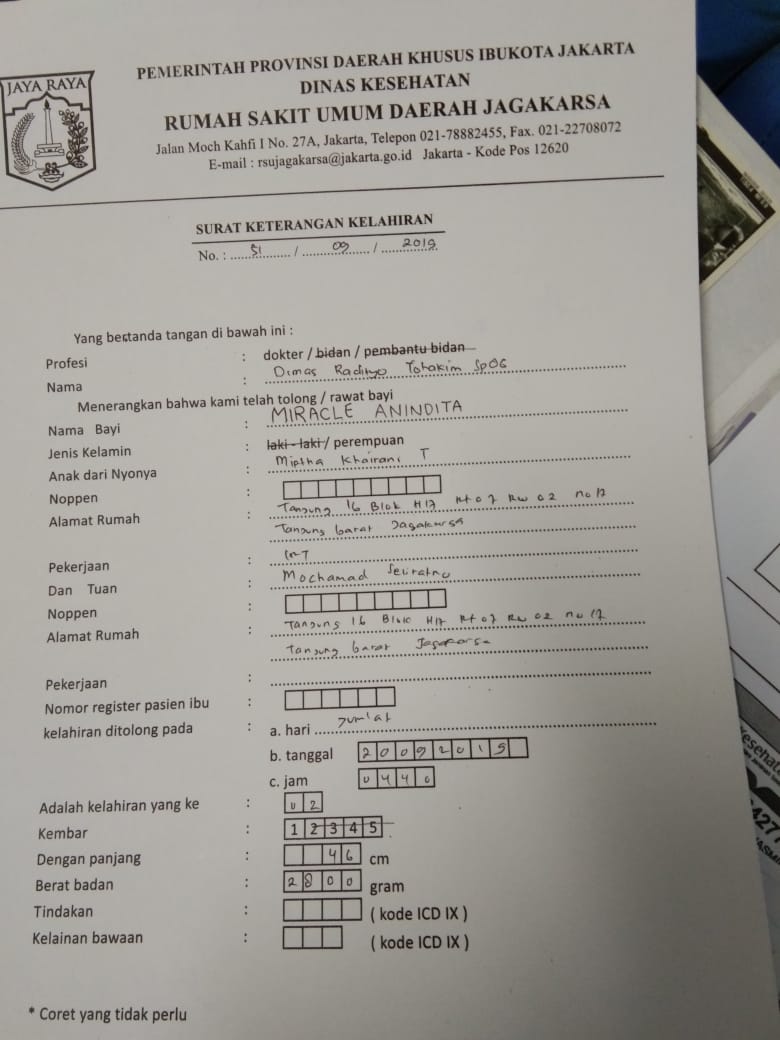 JAYA RAYA
PEMERINTAH PROVINSI DAERAH KHUSUS IBUKOTA JAKARTA
DINAS KESEHATAN
RUMAH SAKIT UMUM DAERAH JAGAKARSA
Jalan Moch Kahfi I No. 27A, Jakarta, Telepon 021-78882455, Fax. 021-22708072
E-mail : rsujagakarsa@jakarta.go.id Jakarta - Kode Pos 12620
SURAT KETERANGAN KELAHIRAN
No. : 51 / 09 / 2019
Yang bertanda tangan di bawah ini :
Profesi : dokter / bidan / pembantu bidan
Nama : Dimas SpOG
Menerangkan bahwa kami telah tolong / rawat bayi
Nama Bayi : MIRACLE ANINDITA
Jenis Kelamin : laki - laki / perempuan
Anak dari Nyonya : Miptha Khairani T
Noppen :
Alamat Rumah : Tanjung 16 Blok H17 Rt 07 Rw 02 no 17
Tanjung barat Jagakarsa
Pekerjaan : IRT
Dan Tuan : Mochamad
Noppen :
Alamat Rumah : Tanjung 16 Blok H17 Rt 07 Rw 02 no 17
Tanjung barat Jagakarsa
Pekerjaan :
Nomor register pasien ibu :
kelahiran ditolong pada : a. hari Jum'at
b. tanggal 2009201
c. jam 0440
Adalah kelahiran yang ke : 02
Kembar : 1 2 3 4 5
Dengan panjang : 46 cm
Berat badan : 2800 gram
Tindakan : ( kode ICD IX )
Kelainan bawaan : ( kode ICD IX )
* Coret yang tidak perlu